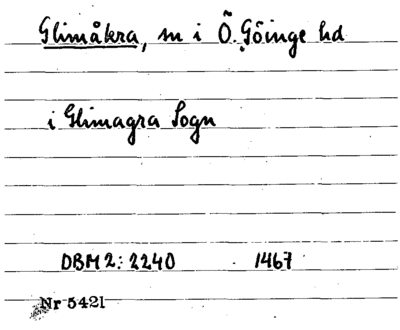 Glimåkra, sn i Ö. Göinge hd
i Glimagra Sogn
DBM2: 2240 1467
Nr 5421